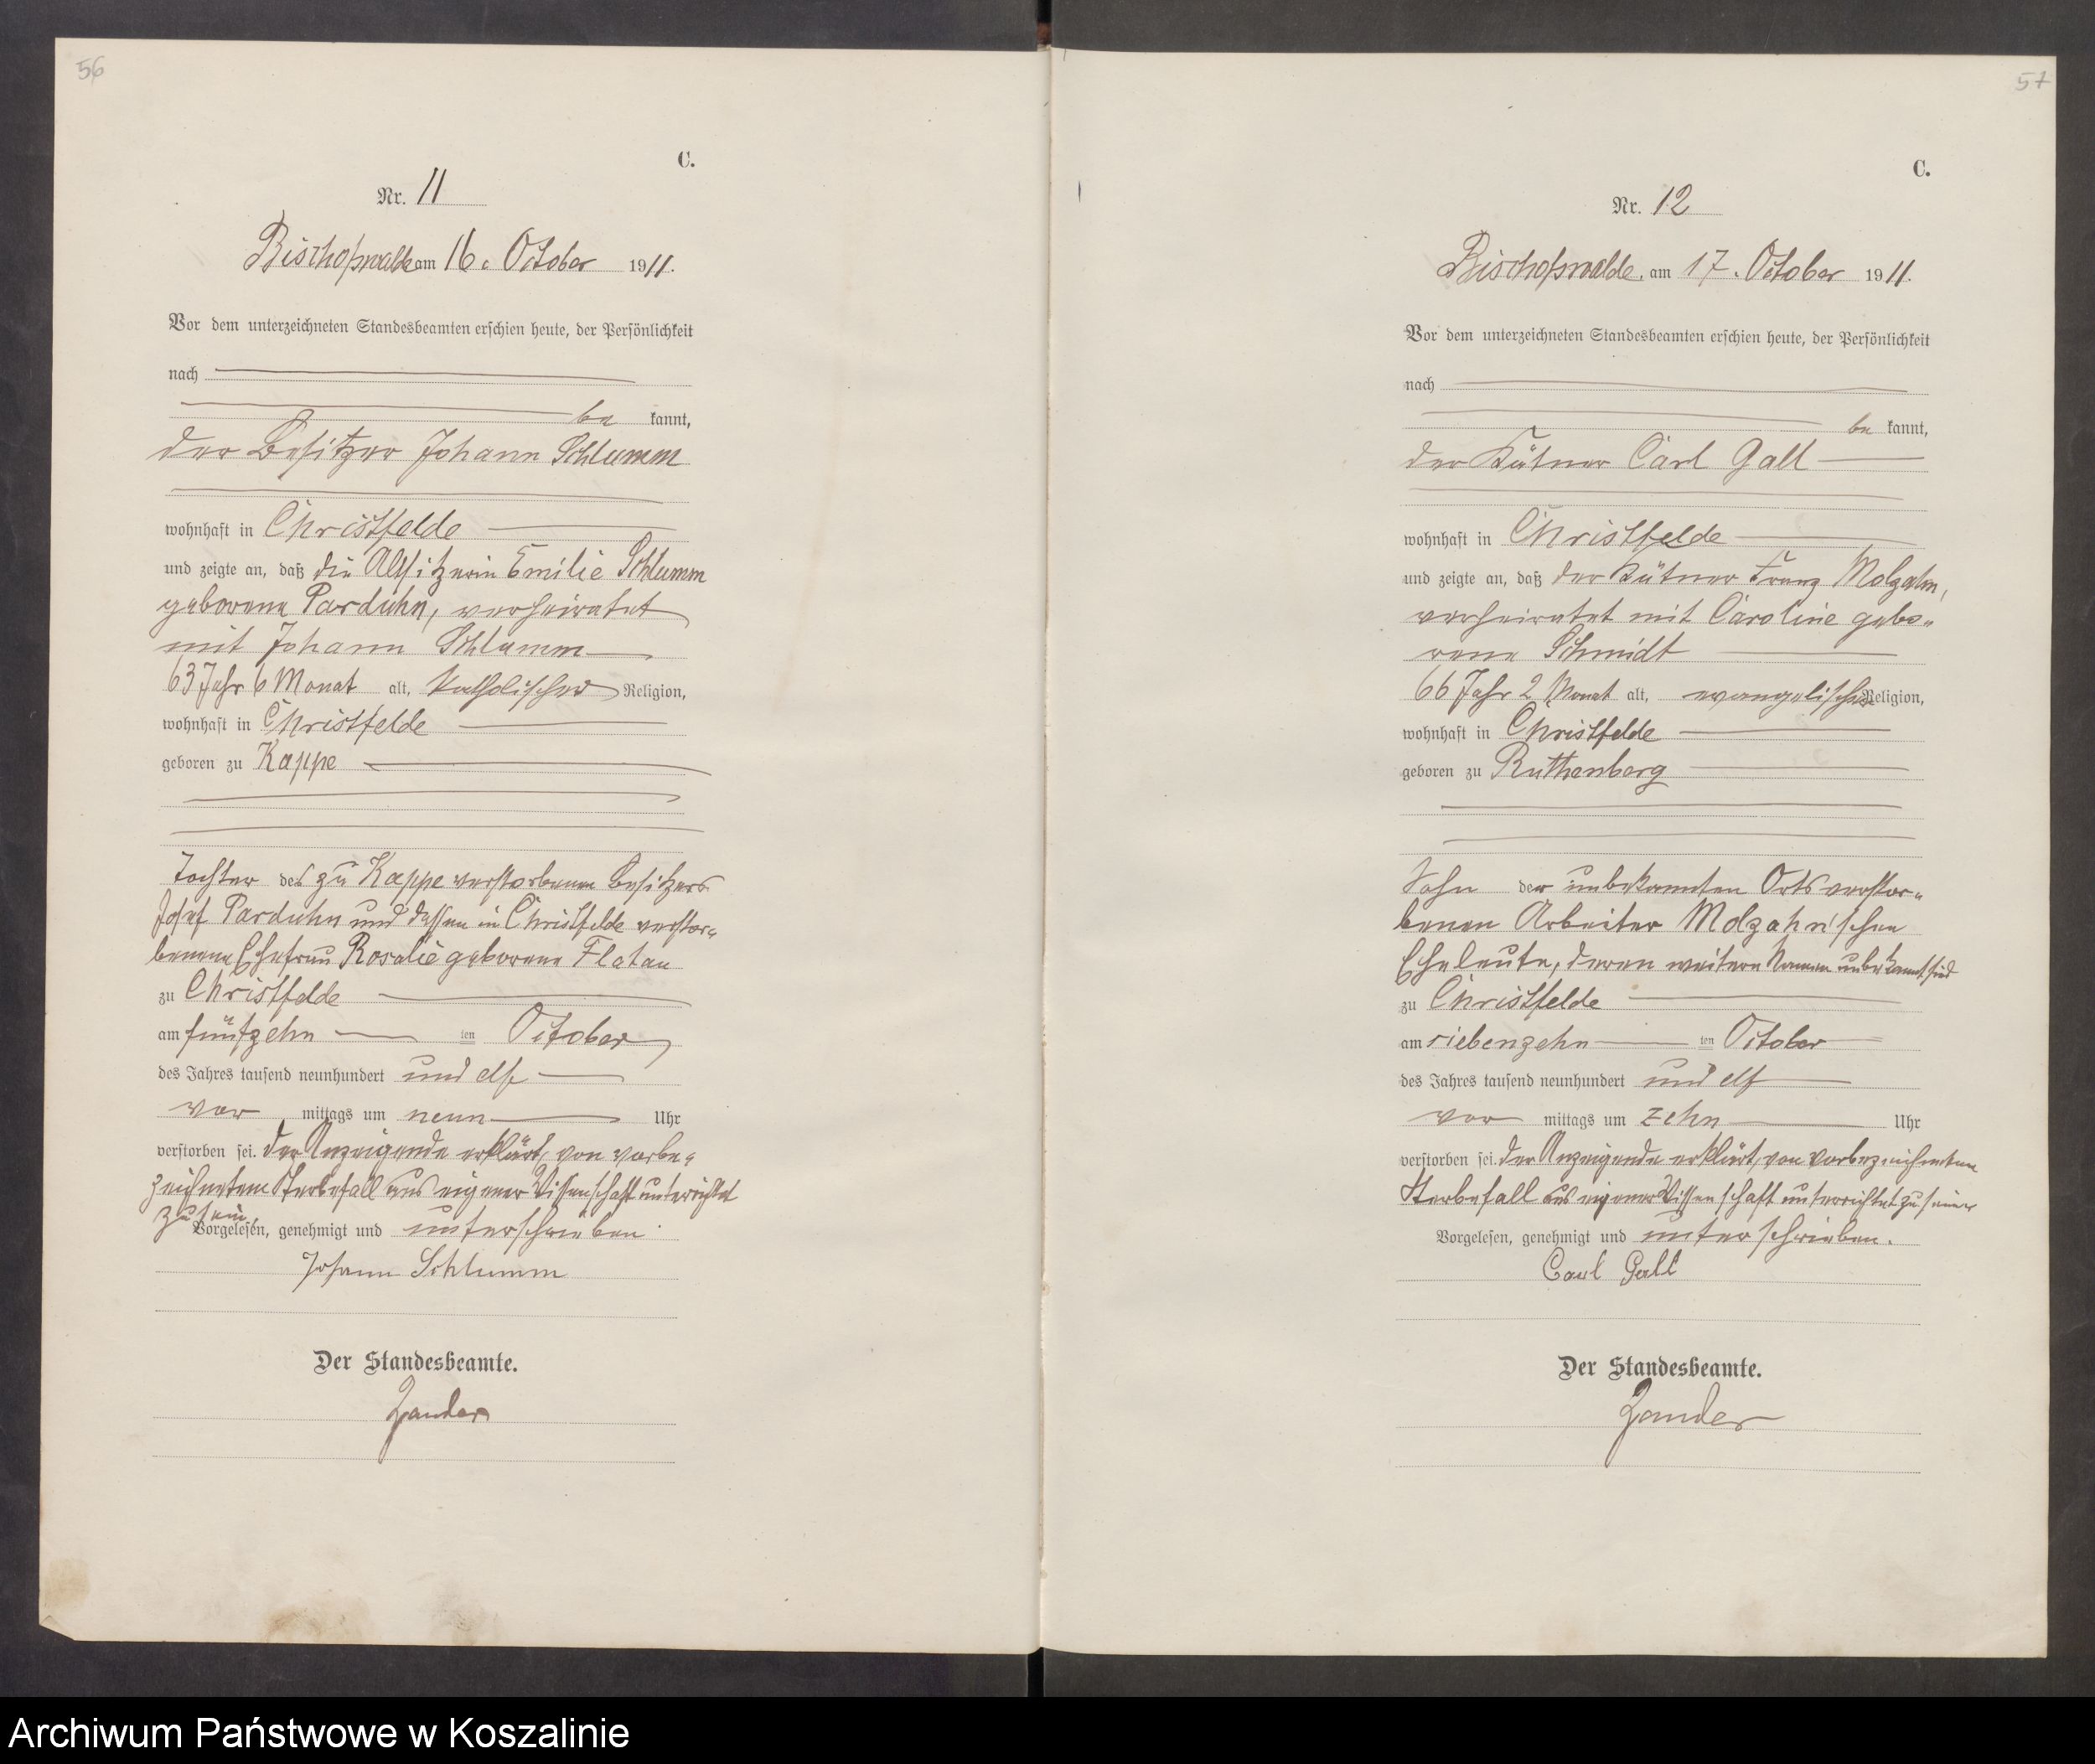 56
C.
Nr. 11
Bischofswalde am 16. October 1911.
Vor dem unterzeichneten Standesbeamten erschien heute, der Persönlichkeit
nach
be kannt,
der Besitzer Johann Schlumm
wohnhaft in Christfelde
und zeigte an, daß die Altsitzerin Emilie Schlumm
geborene Parduhn, verheiratet
mit Johann Schlumm
63 Jahr 6 Monat alt, katholischer Religion,
wohnhaft in Christfelde
geboren zu Kappe
Tochter des zu Kappe verstorbenen Besitzers
Josef Parduhn und dessen in Christfelde verstor„
benene Ehefrau Rosalie geborene Flatau
zu Christfelde
am fünfzehn ten October
des Jahres tausend neunhundert und elf
vor mittags um neun Uhr
verstorben sei. Der Anzeigende erklärt, von vorbe„
zeichnetem Sterbefall aus eigener Wissenschaft unterrichtet
zu sein
Vorgelesen, genehmigt und unterschrieben.
Johann Schlumm
Der Standesbeamte.
Zander
57
C.
Nr. 12
Bischofswalde, am 17. October 1911.
Vor dem unterzeichneten Standesbeamten erschien heute, der Persönlichkeit
nach
be kannt,
der Kätner Carl Gall
wohnhaft in Christfelde
und zeigte an, daß der Kätner Franz Molzahn,
verheiratet mit Caroline gebo„
rene Schmidt
66 Jahr 2 Monat alt, evangelischer Religion,
wohnhaft in Christfelde
geboren zu Ruthenberg
Sohn der unbekannten Orts verstor„
benen Arbeiter Molzahn'schen
Eheleute, deren weitere Namen unbekannt sind
zu Christfelde
am siebenzehn ten October
des Jahres tausend neunhundert und elf
vor mittags um zehn Uhr
verstorben sei. Der Anzeigende erklärt, von vorbezeichneten
Sterbefall aus eigener Wissenschaft unterrichtet zu
Vorgelesen, genehmigt und unterschrieben.
Carl Gall
Der Standesbeamte.
Zander
Archiwum Państwowe w Koszalinie